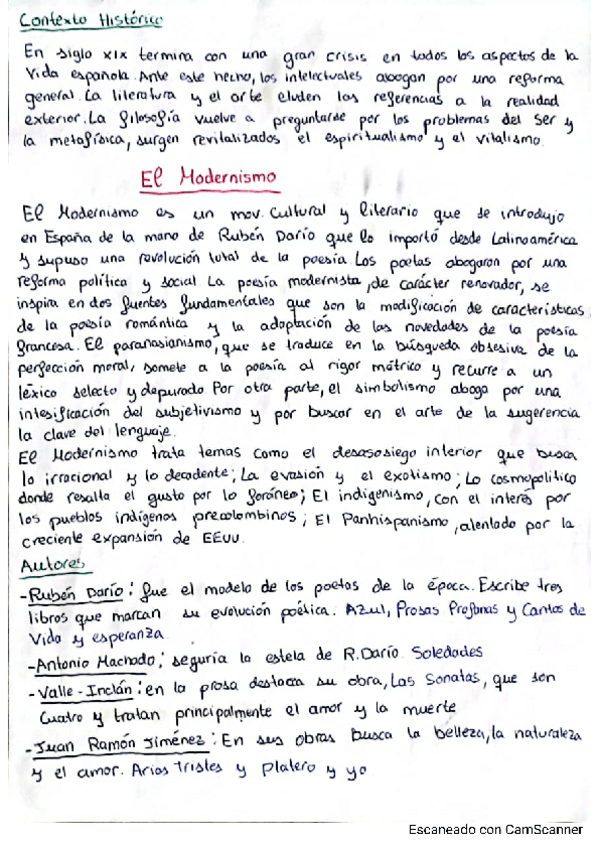 Contexto Histórico
En siglo XIX termina con una gran crisis en todos los aspectos de la
vida española. Ante este hecho, los intelectuales abogan por una reforma
general. La literatura y el arte eluden las referencias a la realidad
exterior. La filosofía vuelve a preguntarse por los problemas del Ser y
la metafísica, surgen revitalizados el espiritualismo y el vitalismo.
El Modernismo
El Modernismo es un mov. Cultural y literario que se introdujo
en España de la mano de Rubén Darío que lo importó desde Latinoamérica
y supuso una revolución total de la poesía Los poetas abogaron por una
reforma política y social. La poesía modernista, de carácter renovador, se
inspira en dos fuentes fundamentales que son la modificación de características
de la poesía romántica y la adaptación de las novedades de la poesía
francesa. El paranasianismo, que se traduce en la búsqueda obsesiva de la
perfección moral, somete a la poesía al rigor métrico y recurre a un
léxico selecto y depurado Por otra parte, el simbolismo aboga por una
intesificación del subjetivismo y por buscar en el arte de la sugerencia
la clave del lenguaje.
El Modernismo trata temas como el desasosiego interior que busca
lo irracional y lo decadente; La evasión y el exotismo; Lo cosmopolitico
donde resalta el gusto por lo foráneo; El indigenismo, con el interés por
los pueblos indígenas precolombinos; El Panhispanismo, alentado por la
creciente expansión de EEUU.
Autores
- Rubén Darío: fue el modelo de los poetas de la época. Escribe tres
libros que marcan su evolución poética. Azul, Prosas Profanas y Cantos de
Vida y esperanza
- Antonio Machado; seguría la estela de R. Darío. Soledades
- Valle-Inclán: en la prosa destaca su obra, Las Sonatas, que son
cuatro y tratan principalmente el amor y la muerte
- Juan Ramón Jiménez: En sus obras busca la belleza, la naturaleza
y el amor. Arias Tristes y Platero y yo
Escaneado con CamScanner